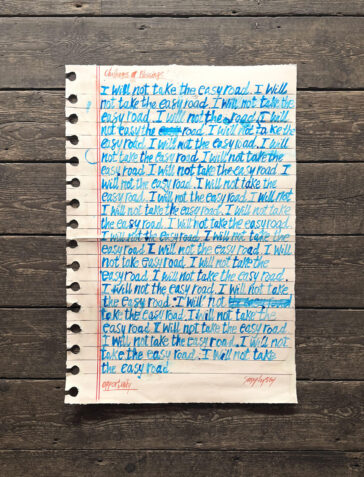 Challenges & Blessings
I will not take the easy road. I will
not take the easy road. I will not take the
easy road. I will not the road. I will
not easy the road. I will not take the
easy road. I will not the easy road. I will
not take the easy road. I will not take the
easy road. I will not take the easy road. I
will not the easy road. I will not take the
easy road. I will not the easy road. I will not
I will not take the easy road. I will not take
the easy road. I will not take the easy road.
I will not the easy road. I will not take the
easy road. I will not the easy road. I will
not take easy road. I will not take the
easy road. I will not take the easy road.
I will not the easy road. I will not take
the easy road. I will not
take the easy road. I will not take the
easy road I will not take the easy road
I will not take the easy road. I will not
take the easy road. I will not take
the easy road.
opportunity